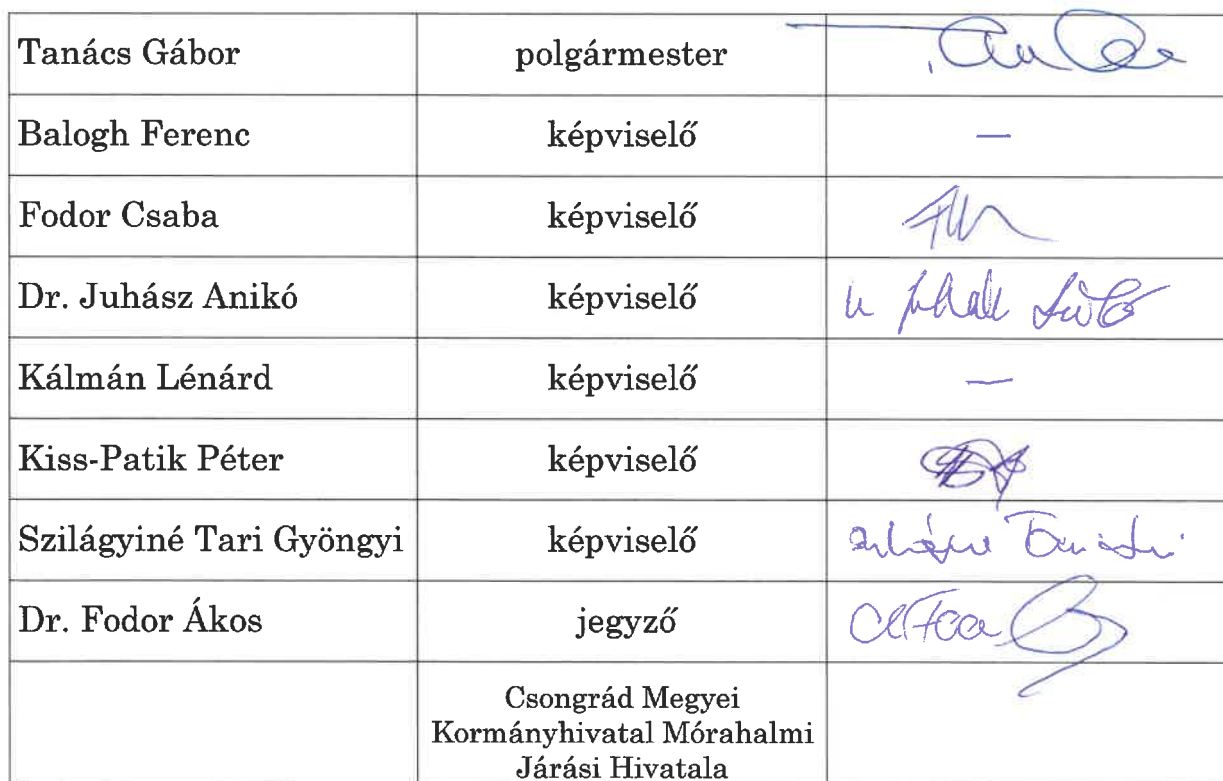 Tanács Gábor polgármester
Balogh Ferenc képviselő —
Fodor Csaba képviselő
Dr. Juhász Anikó képviselő
Kálmán Lénárd képviselő —
Kiss-Patik Péter képviselő
Szilágyiné Tari Gyöngyi képviselő
Dr. Fodor Ákos jegyző
Csongrád Megyei
Kormányhivatal Mórahalmi
Járási Hivatala